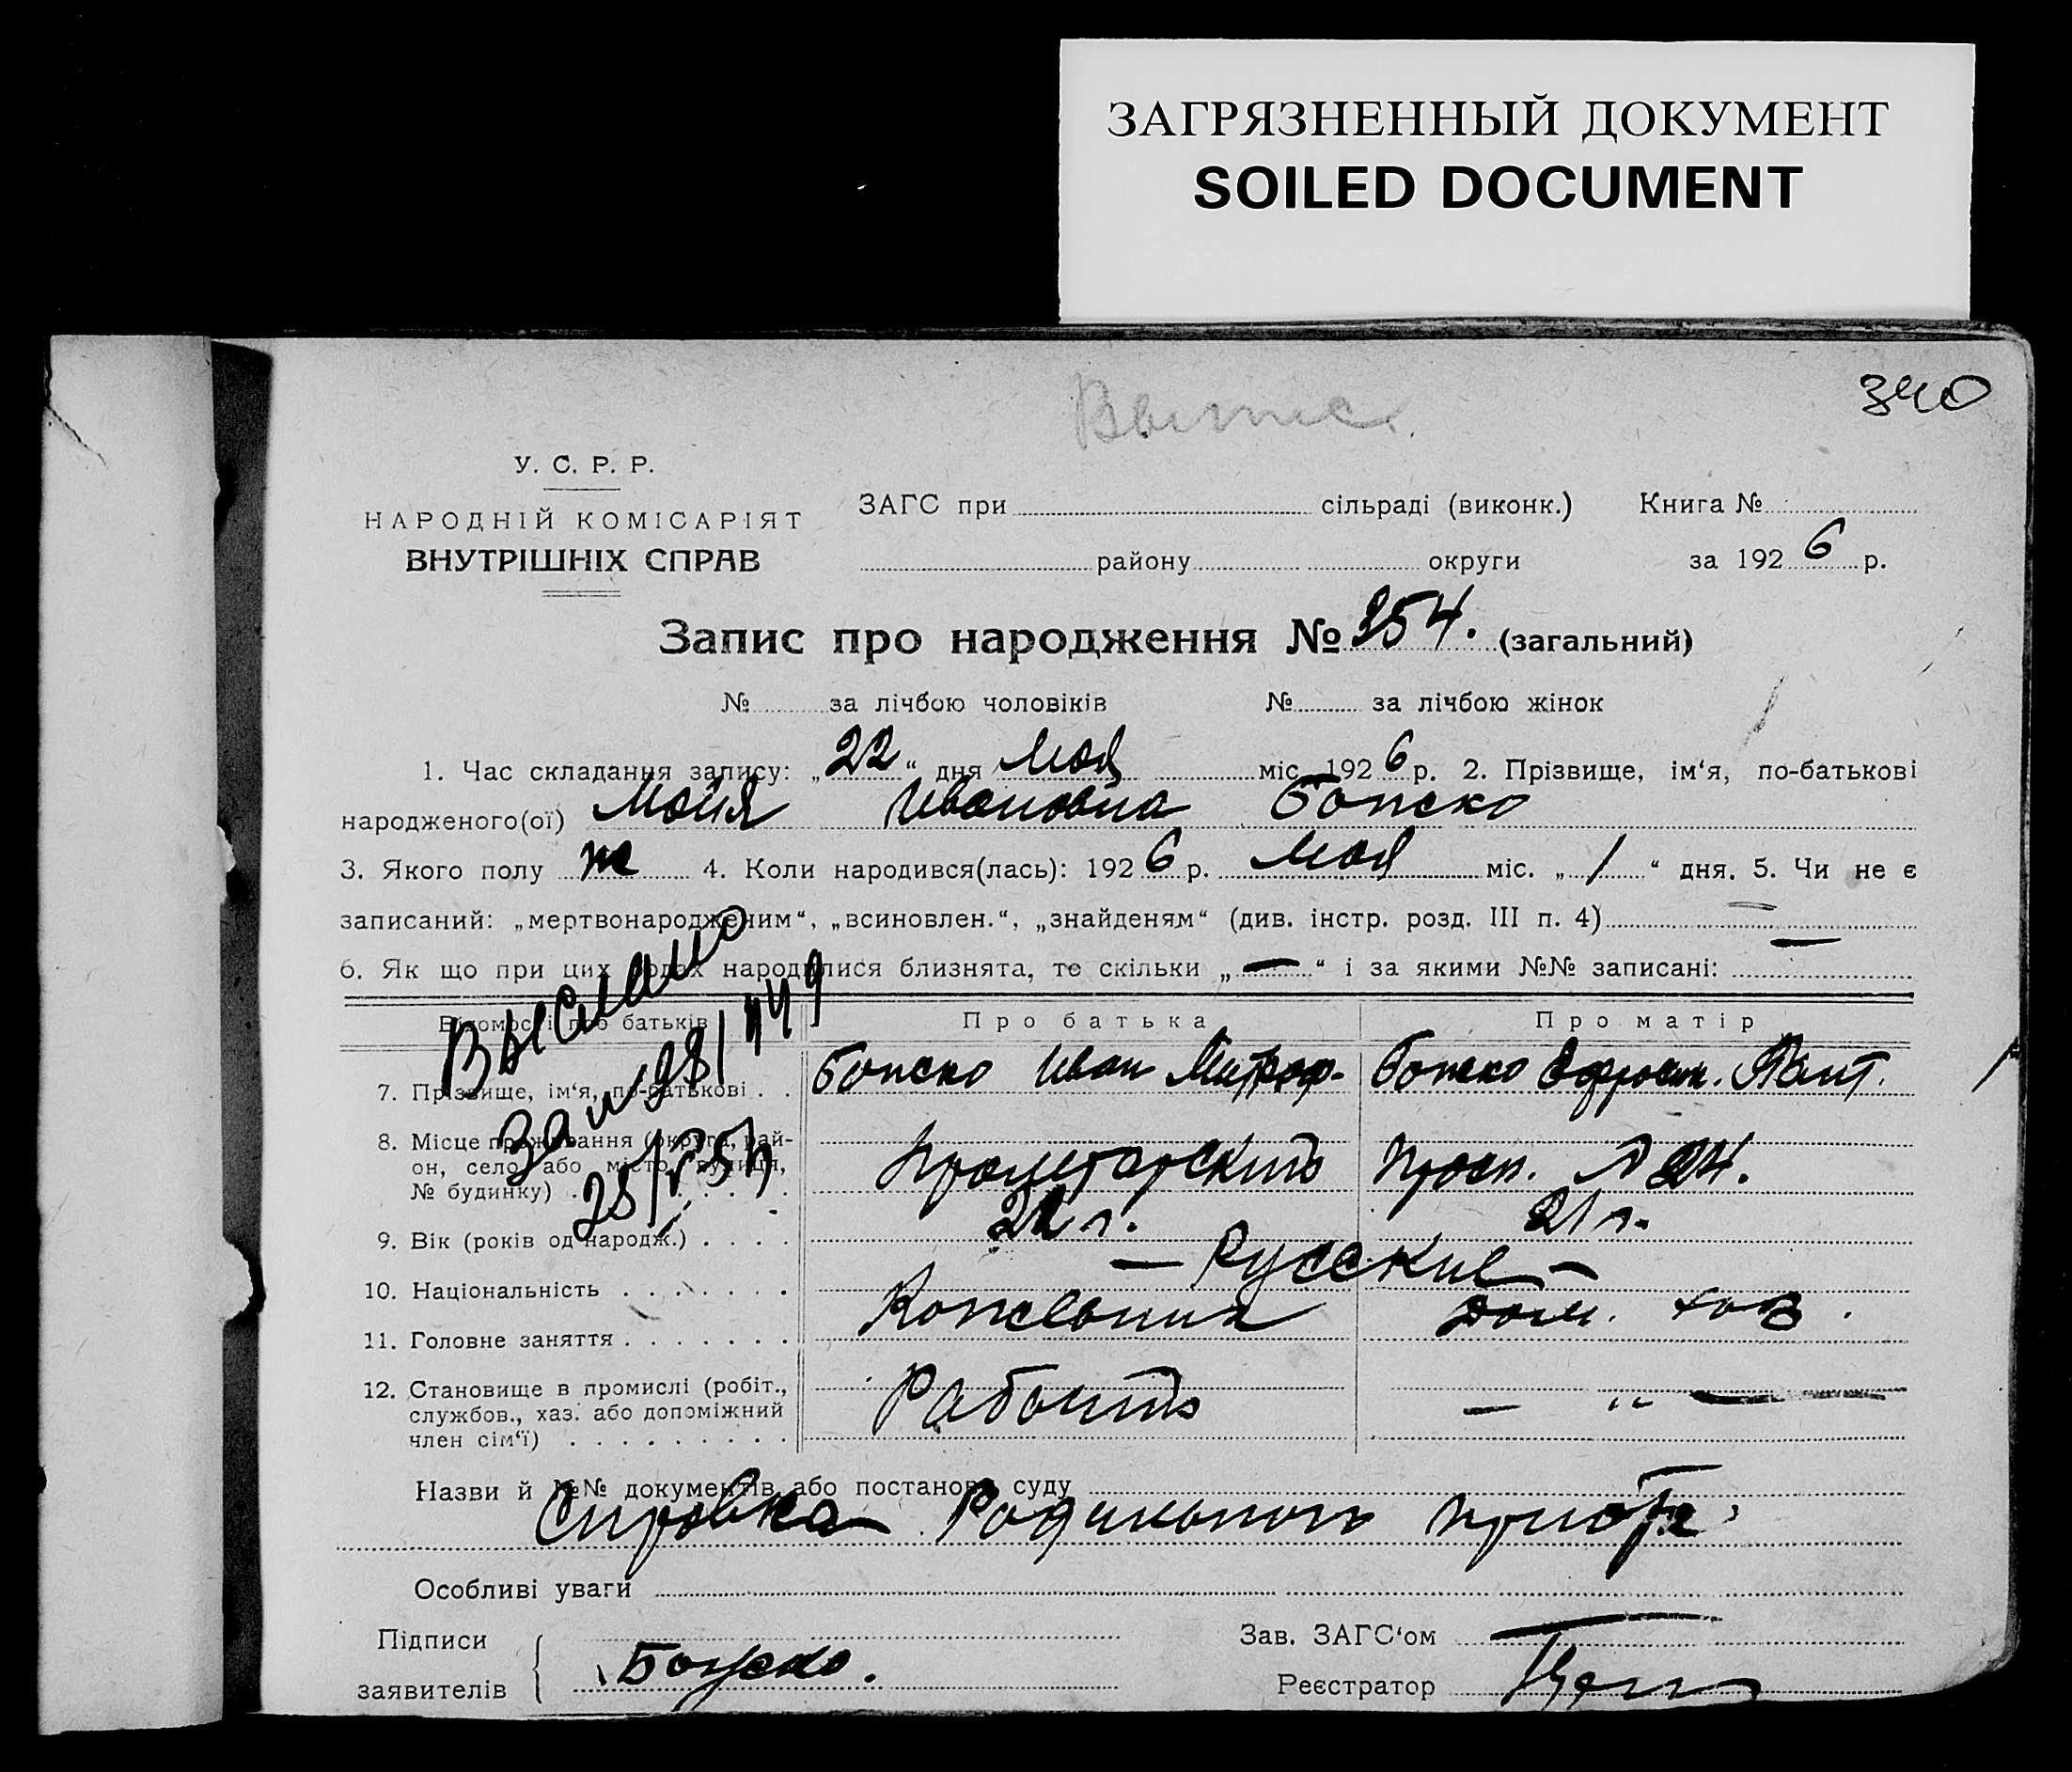 ЗАГРЯЗНЕННЫЙ ДОКУМЕНТ
SOILED DOCUMENT
340
Выпис.
У. С. Р. Р.
НАРОДНІЙ КОМІСАРІЯТ
ВНУТРІШНІХ СПРАВ
ЗАГС при сільраді (виконк.) Книга №
району округи за 1926 р.
Запис про народження № 354. (загальний)
№ за лічбою чоловіків № за лічбою жінок
1. Час складання запису: „22“ дня Мая міс. 1926 р. 2. Прізвище, ім‘я, по-батькові
народженого(ої) Майя Ивановна Божко
3. Якого полу ж 4. Коли народився(лась): 1926 р. Мая міс. „1“ дня. 5. Чи не є
записаний: „мертвонародженим“, „всиновлен.“, „знайденям“ (див. інстр. розд. III п. 4) —
6. Як що при цих родах народилися близнята, то скільки „—“ і за якими №№ записані:
Відомості про батьків Про батька Про матір
7. Прізвище, ім‘я, по-батькові . . Божко Иван Митроф. Божко Ефросин. Пант.
8. Місце проживання (округа, рай-
он, село або місто, вулиця,
№ будинку) Пролетарский просп. № 24.
9. Вік (років од народж.) . . . . 22 л. 21 л.
10. Національність . . . . . . . — Русские —
11. Головне заняття . . . . . . . Кожевник Дом. хоз.
12. Становище в промислі (робіт.,
службов., хаз. або допоміжний
член сім‘ї) . . . . . . . . . Рабочий — „ —
Выслано
за №
Назви й №№ документів або постанова суду
Справка Родильного приюта
Особливі уваги
Підписи
заявителів Божко.
Зав. ЗАГС‘ом
Реєстратор